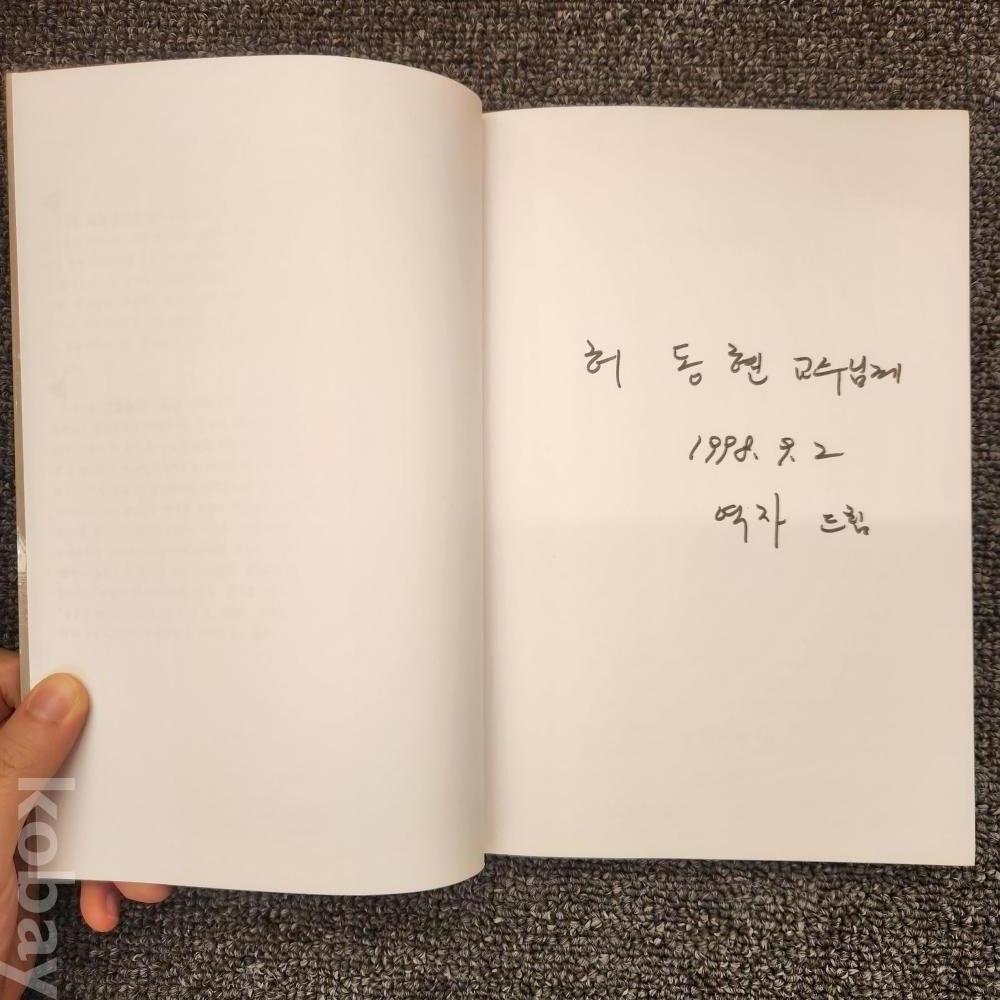 허 동현 교수님께
1998. 9. 2
역자 드림
kobay